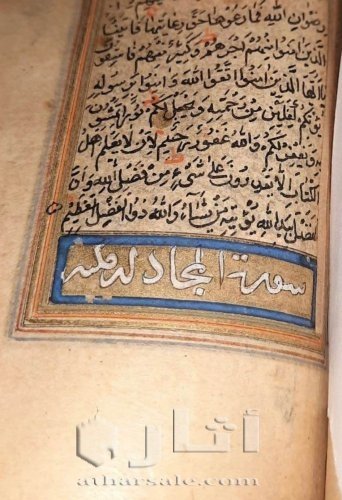 رضوان الله فما رعوها حق رعايتها فاتينا
الذين امنوا منهم اجرهم وكثير منهم فاسقو
يا ايها الذين امنوا اتقوا الله وامنوا برسوله
يؤتكم كفلين من رحمته ويجعل لكم نورا تمشون
به ويغفر لكم والله غفور رحيم لئلا يعلم اهل
الكتاب الا يقدرون على شيء من فضل الله وان
الفضل بيد الله يؤتيه من يشاء والله ذو الفضل العظيم
سورة المجادله مدنيه
atharsale.com